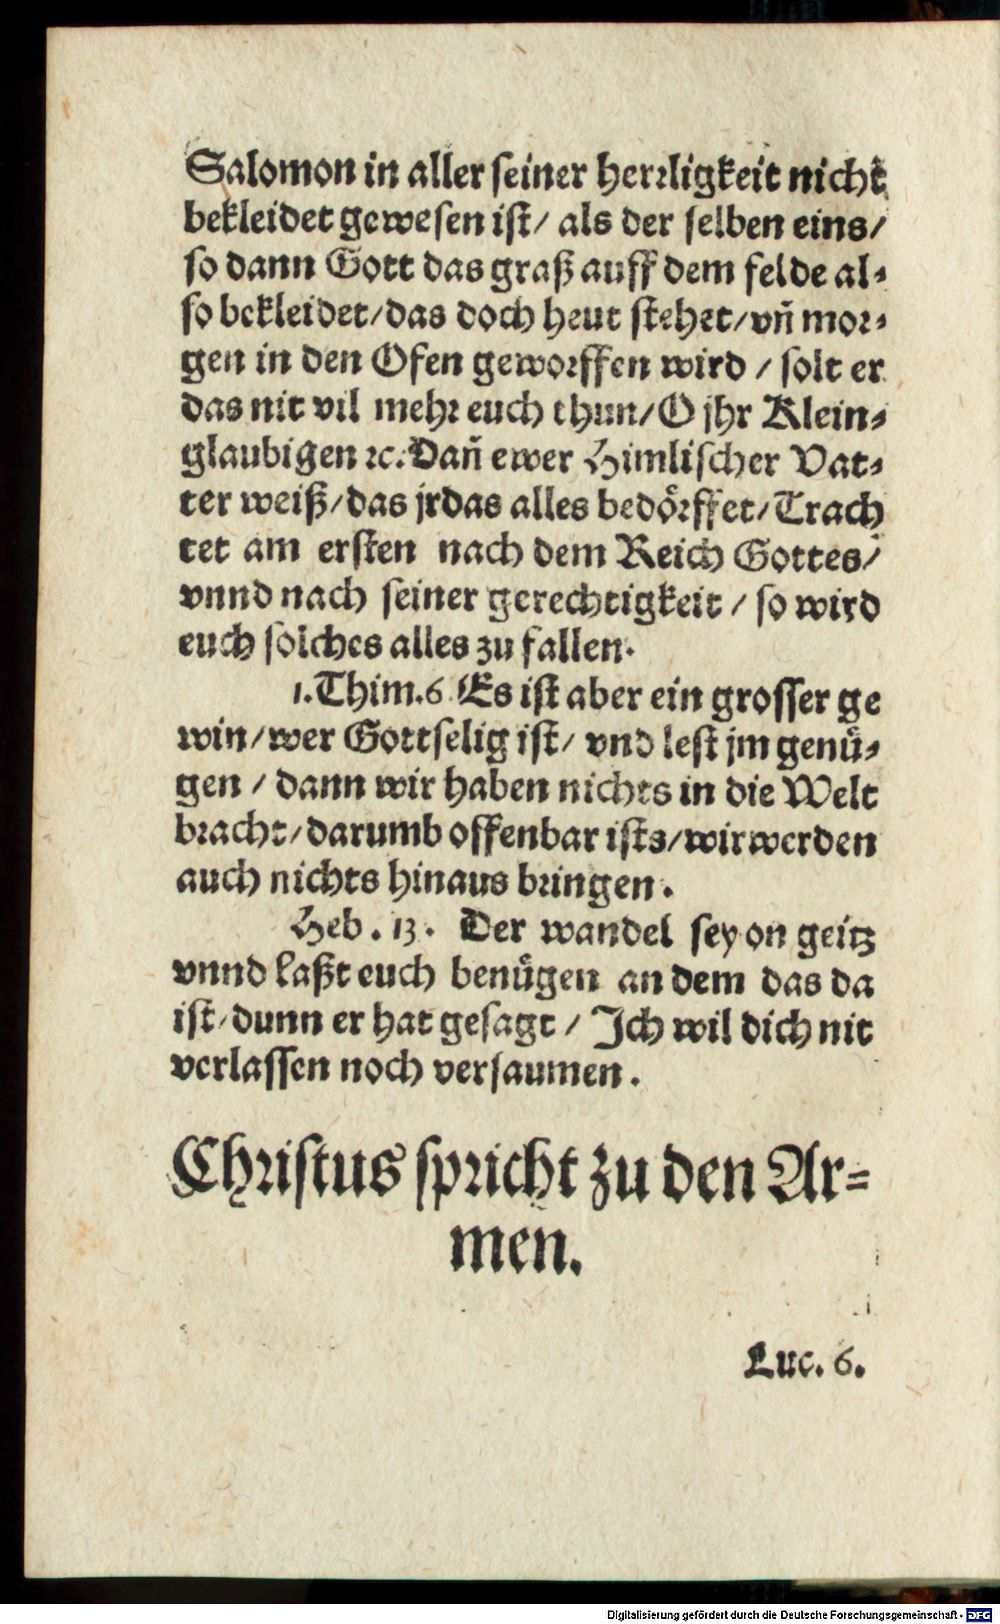 Salomon in aller seiner herrligkeit nicht
bekleidet gewesen ist/ als der selben eins/
so dann Gott das graß auff dem felde al-
so bekleidet/das doch heut stehet/vñ mor-
gen in den Ofen geworffen wird / solt er
das nit vil mehr euch thun/O jhr Klein-
glaubigen ꝛc. Dañ ewer Himlischer Vat-
ter weiß/das jrdas alles bedörffet/Trach
tet am ersten nach dem Reich Gottes/
vnnd nach seiner gerechtigkeit / so wird
euch solches alles zu fallen.
1.Thim.6 Es ist aber ein grosser ge
win/wer Gottselig ist/ vnd lest jm genü-
gen / dann wir haben nichts in die Welt
bracht/darumb offenbar ists/wir werden
auch nichts hinaus bringen.
Heb. 13. Der wandel sey on geitz
vnnd laßt euch benügen an dem das da
ist/dunn er hat gesagt / Ich wil dich nit
verlassen noch versaumen.
Christus spricht zu den Ar=
men.
Luc. 6.
Digitalisierung gefördert durch die Deutsche Forschungsgemeinschaft - DFG